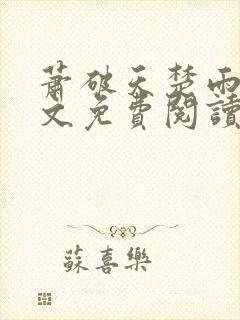 蕭破天楚雨
文免費閱讀
蘇喜樂